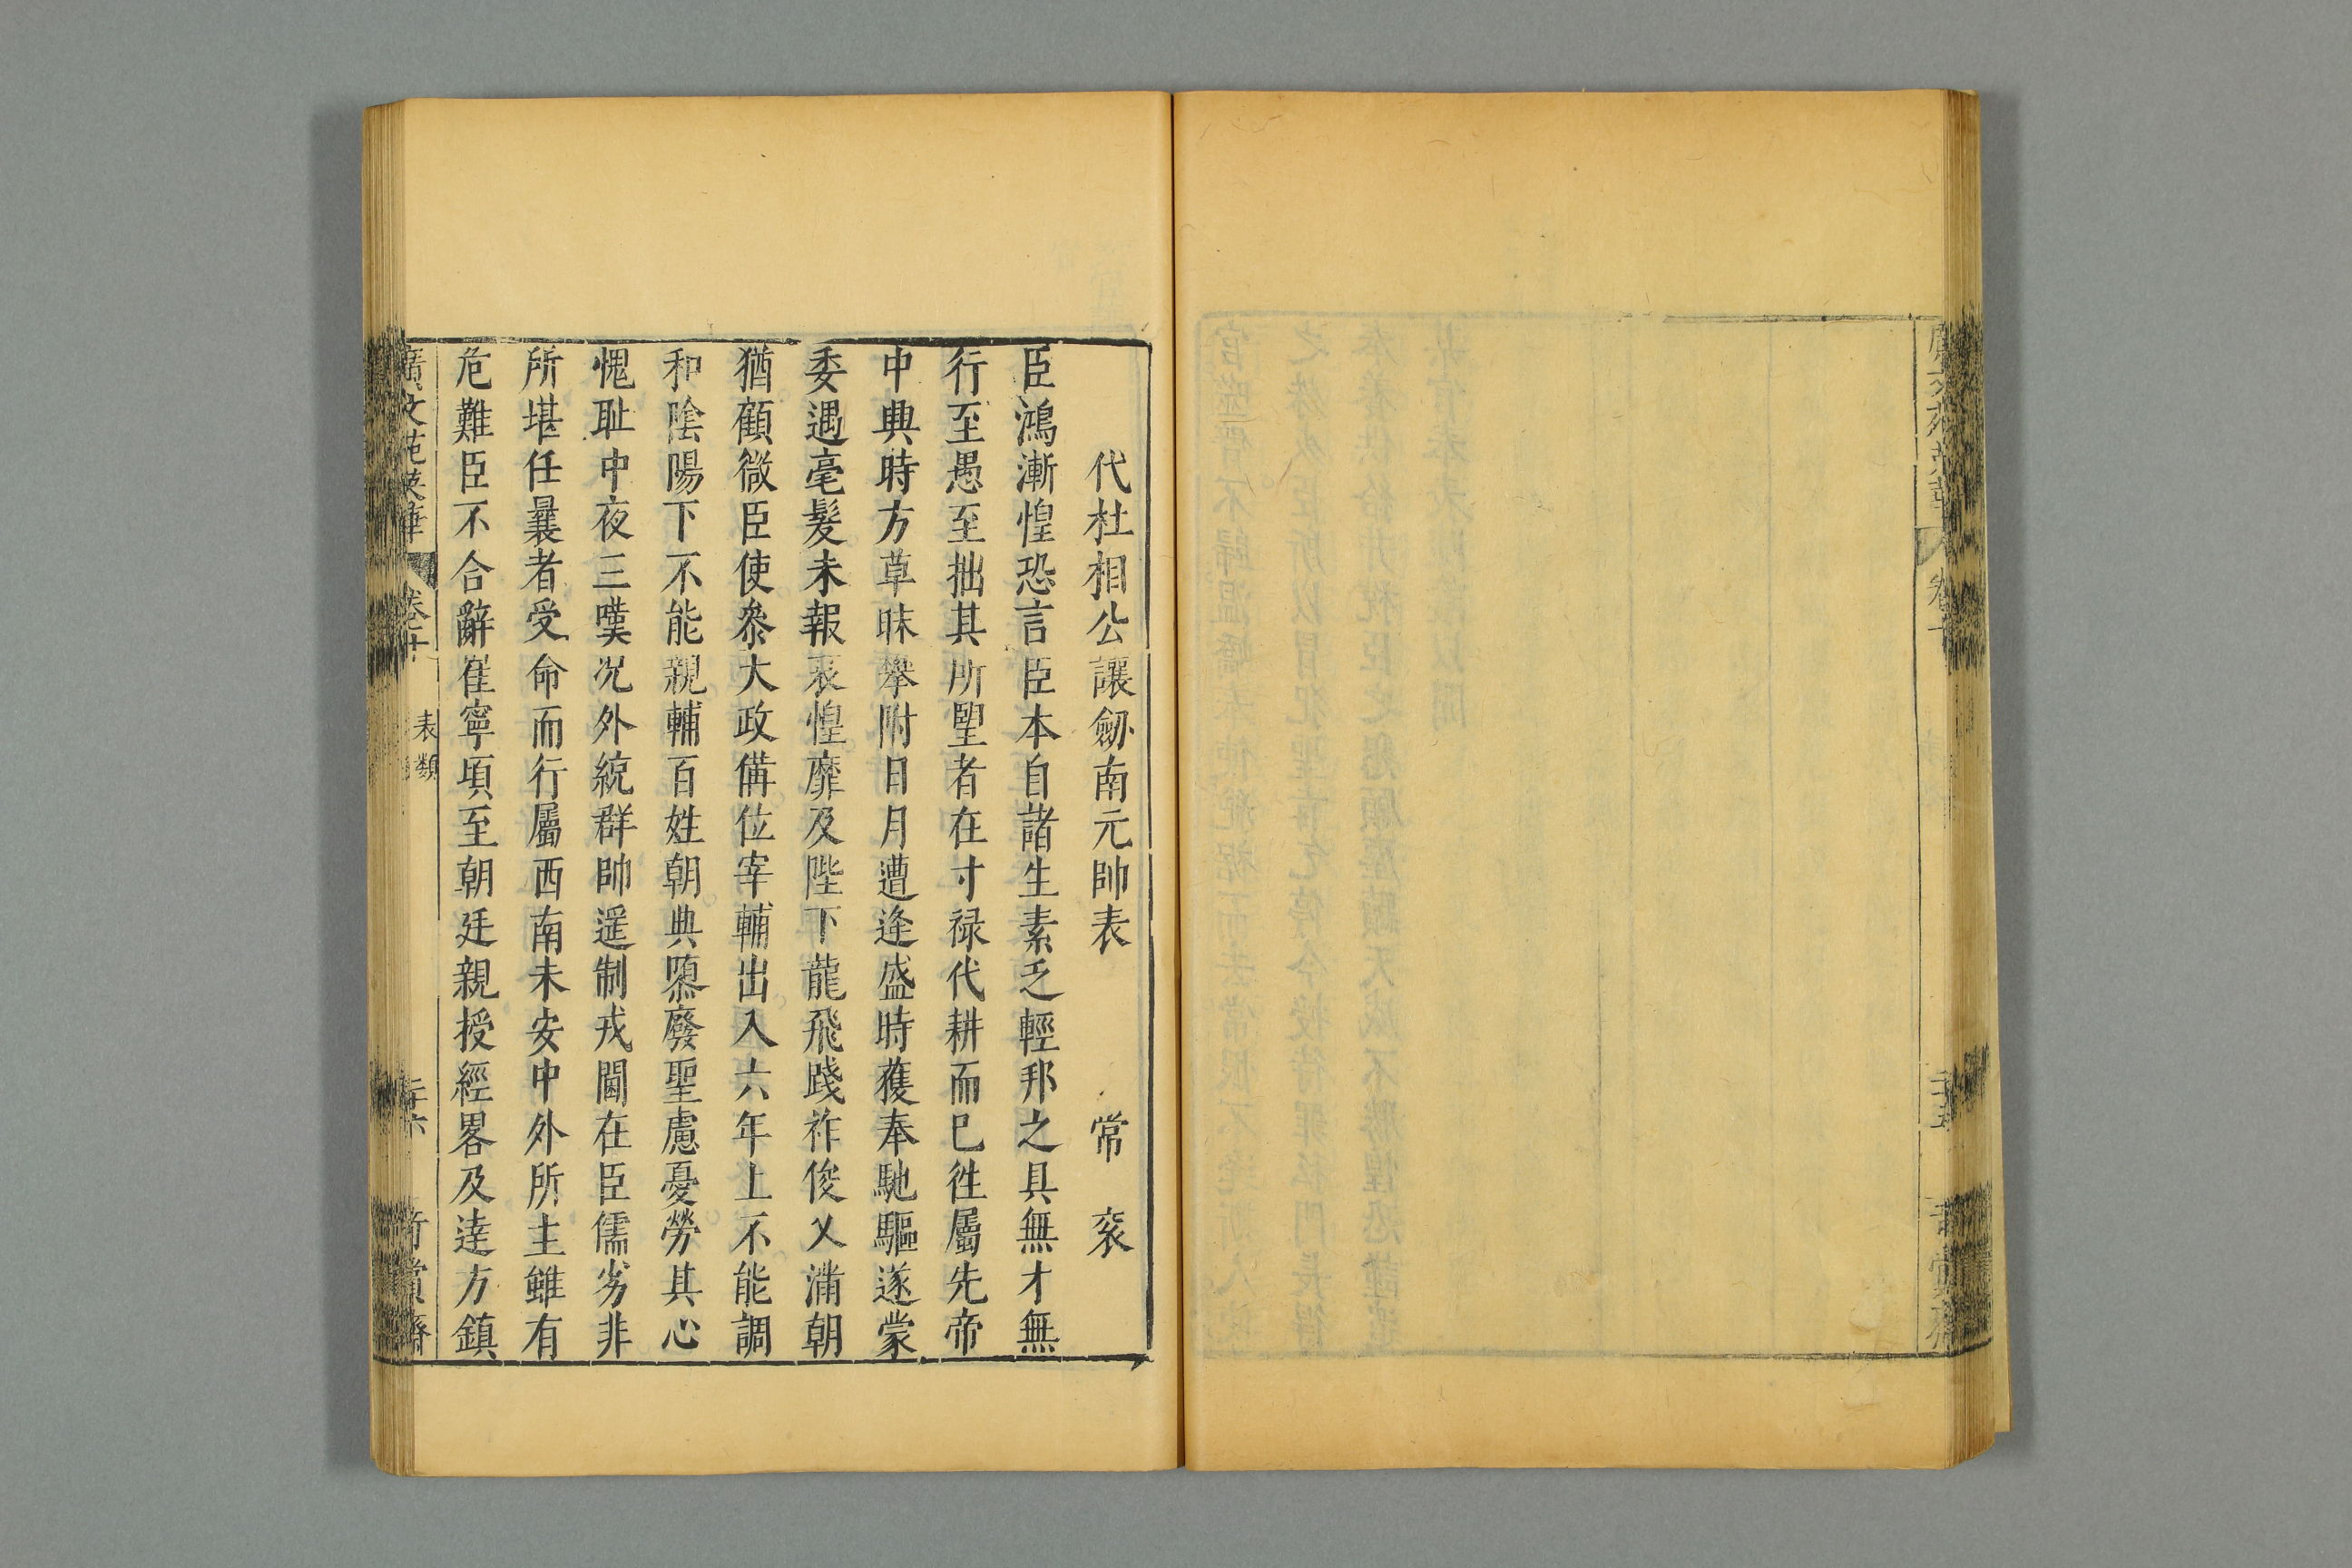 代杜相公讓劒南元帥表 常 袞
臣鴻漸惶恐言臣本自諸生素乏輕邦之具無才無
行至愚至拙其所朢者在寸禄代耕而巳徃屬先帝
中興時方草昧舉附日月遭逢盛時獲奉馳驅遂蒙
委遇毫髮未報哀惶靡及陛下龍飛踐祚俊乂滿朝
猶顧微臣使叅大政備位宰輔出入六年上不能調
和陰陽下不能親輔百姓朝典隳廢聖慮憂勞其心
愧耻中夜三嘆况外統群帥遥制戎閫在臣儒劣非
所堪任曩者受命而行屬西南未安中外所主雖有
危難臣不合辭崔寧頃至朝廷親授經畧及逹方鎮
廣文苑英華 卷十 表類 二十六